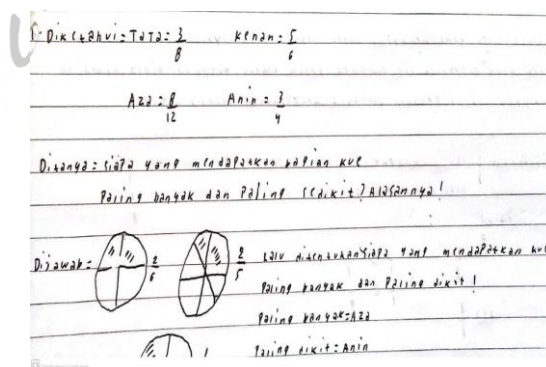 Diketahui = Tata = 3/8 Kenan = 5/6
Aza = 8/12 Anin = 3/4
Ditanya = siapa yang mendapatkan bagian kue
Paling banyak dan Paling sedikit? Alasannya!
Dijawab = 2/6 2/5 Lalu ditentukan siapa yang mendapatkan
Paling banyak dan Paling dikit!
Paling banyak = Aza
Paling dikit = Anin